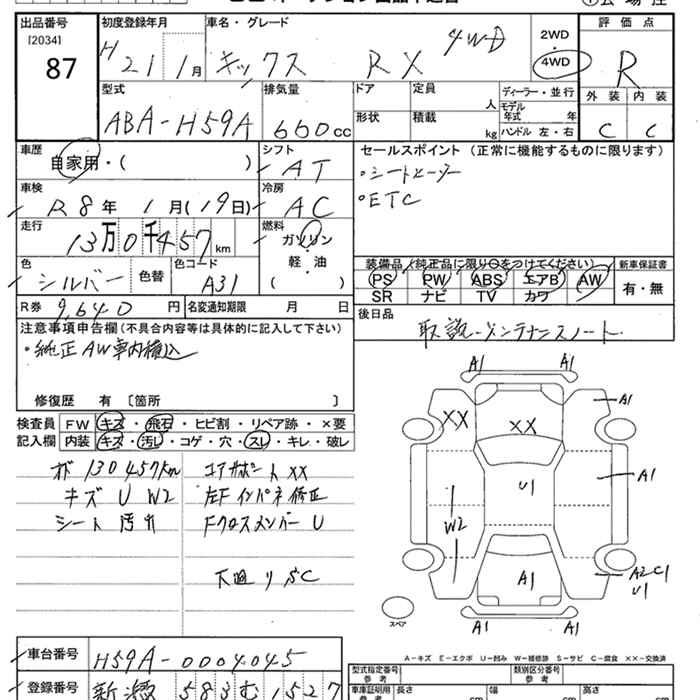 出品番号 初度登録年月 車名・グレード 評価点
[2034]
87 H21 1月 キックス RX 4WD 2WD 4WD R
型式 排気量 ドア 定員 人 ディーラー・並行 外装 内装
ABA-H59A 660cc 形状 積載 kg モデル年式 年 ハンドル 左・右 C C
車歴 自家用・( ) シフト AT
セールスポイント (正常に機能するものに限ります)
・シートヒーター
・ETC
車検 R8年 1月(19日) 冷房 AC
走行 13万0千457km 燃料 ガソリン 軽・油 ( )
色 シルバー 色替 色コード A31
装備品(純正品に限り○をつけてください) 新車保証書
PS PW ABS エアB AW 有・無
SR ナビ TV カワ
R券 9,640円 名変通知期限 月 日
後日品 取説・メンテナンスノート
注意事項申告欄(不具合内容等は具体的に記入して下さい)
・純正AW車内積込
修復歴 有 〔箇所 〕
検査員 FW キズ・飛石・ヒビ割・リペア跡・×要
記入欄 内装 キズ・汚レ・コゲ・穴・スレ・キレ・破レ
オド 130457km コアサポート XX
キズ U W2 左Fインパネ修正
シート汚れ Fクロスメンバー U
下廻りSC
A1 A1
XX XX A1
U1 A1
W2
A1 A2C1
U1
A1 A1
スペア
A-キズ E-エクボ U-凹み W-補修跡 S-サビ C-腐食 ××-交換済
車台番号 H59A-0004045
型式指定番号 参考 類別区分番号 参考
登録番号 新潟 583 む 1527
車庫証明用 参考 長さ cm 幅 cm 高さ cm